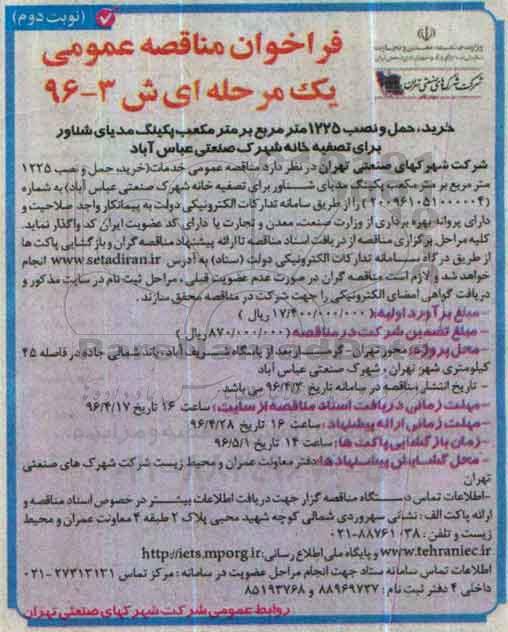 (نوبت دوم)
وزارت صنعت، معدن و تجارت
شرکت شهرکهای صنعتی تهران
فراخوان مناقصه عمومی
یک مرحله ای ش ۳-۹۶
خرید، حمل و نصب ۱۲۲۵ متر مربع بر متر مکعب پکینگ مدیای شناور
برای تصفیه خانه شهرک صنعتی عباس آباد
شرکت شهرکهای صنعتی تهران در نظر دارد مناقصه عمومی خدمات(خرید، حمل و نصب ۱۲۲۵
متر مربع بر متر مکعب پکینگ مدیای شناور برای تصفیه خانه شهرک صنعتی عباس آباد) به شماره
(۲۰۰۹۶۱۰۵۱۰۰۰۰۰۴) را از طریق سامانه تدارکات الکترونیکی دولت به پیمانکار واجد صلاحیت و
دارای پروانه بهره برداری از وزارت صنعت، معدن و تجارت یا دارای کد عضویت ایران کد واگذار نماید.
کلیه مراحل برگزاری مناقصه از دریافت اسناد مناقصه تا ارائه پیشنهاد مناقصه گران و بازگشایی پاکت ها
از طریق درگاه سامانه تدارکات الکترونیکی دولت (ستاد) به آدرس www.setadiran.ir انجام
خواهد شد و لازم است مناقصه گران در صورت عدم عضویت قبلی، مراحل ثبت نام در سایت مذکور و
دریافت گواهی امضای الکترونیکی را جهت شرکت در مناقصه محقق سازند.
- مبلغ برآورد اولیه:( ۱۷/۴۰۰/۰۰۰/۰۰۰ ریال )
- مبلغ تضمین شرکت در مناقصه ( ۸۷۰/۰۰۰/۰۰۰ ریال )
- محل پروژه: محور تهران - گرمسار بعد از پاسگاه شریف آباد، باند شمالی جاده در فاصله ۴۵
کیلومتری شهر تهران، شهرک صنعتی عباس آباد
- تاریخ انتشار مناقصه در سامانه تاریخ ۹۶/۴/۳ می باشد
- مهلت زمانی دریافت اسناد مناقصه از سایت: ساعت ۱۶ تاریخ ۹۶/۴/۱۷
- مهلت زمانی ارائه پیشنهاد: ساعت ۱۶ تاریخ ۹۶/۴/۲۸
- زمان بازگشایی پاکت ها: ساعت ۱۴ تاریخ ۹۶/۵/۱
- محل گشایش پیشنهادها: دفتر معاونت عمران و محیط زیست شرکت شهرک های صنعتی
تهران
-اطلاعات تماس دستگاه مناقصه گزار جهت دریافت اطلاعات بیشتر در خصوص اسناد مناقصه و
ارائه پاکت الف: نشانی سهروردی شمالی کوچه شهید محبی پلاک ۲ طبقه ۴ معاونت عمران و محیط
زیست و تلفن: ۸۸۷۶۱۰۳۸-۰۲۱
www.tehraniec.ir و پایگاه ملی اطلاع رسانی: http://iets.mporg.ir
اطلاعات تماس سامانه ستاد جهت انجام مراحل عضویت در سامانه: مرکز تماس ۲۷۳۱۳۱۳۱-۰۲۱
داخلی ۴ دفتر ثبت نام: ۸۸۹۶۹۷۳۷ و ۸۵۱۹۳۷۶۸
روابط عمومی شرکت شهرکهای صنعتی تهران